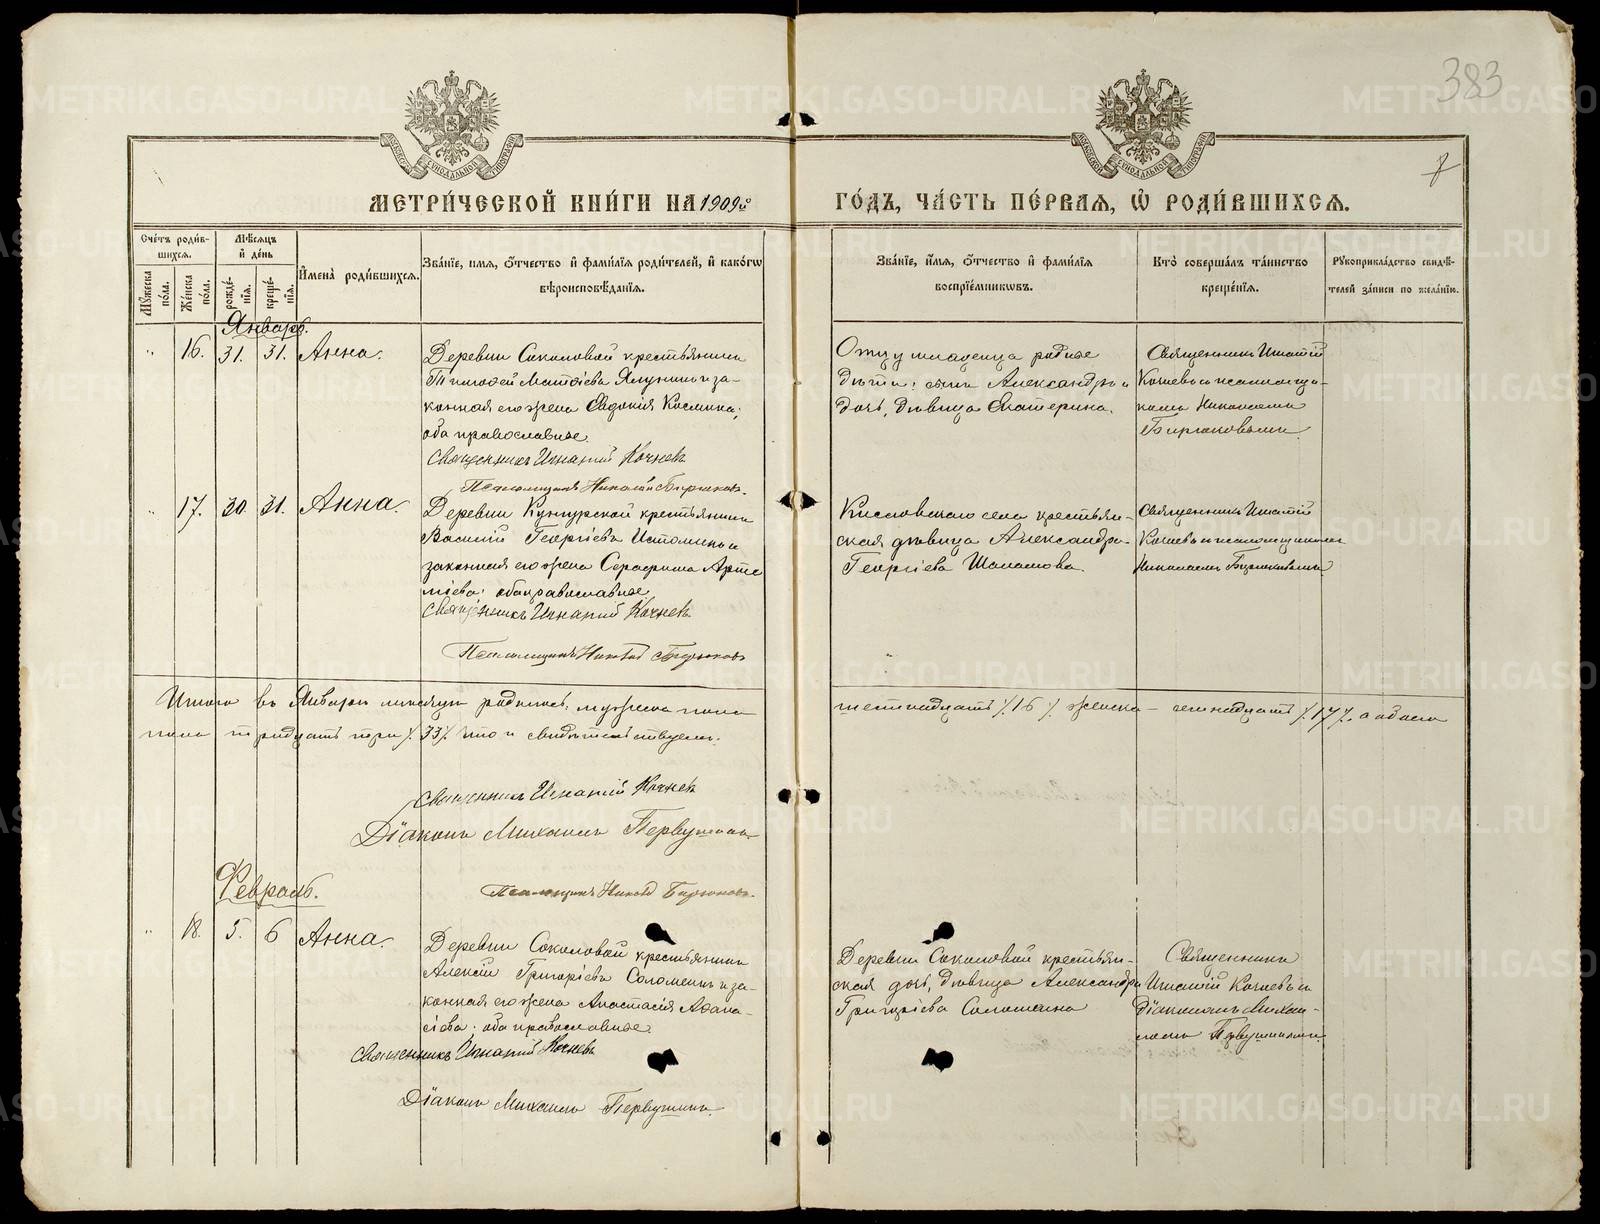 383
7
МЕТРИ́ЧЕСКОЙ КНИ́ГИ НА 1909й ГО́ДЪ, ЧА́СТЬ ПЕ́РВАЯ, Ѡ РОДИ́ВШИХСЯ.
Сче́тъ роди́вшихся.
Мѣ́сяцъ и҆ де́нь
И҆мена̀ роди́вшихся.
Зва́нїе, и҆мя, ѻ҆́тчество и҆ фами́лїя роди́телей, и҆ како́гѡ вѣроисповѣ́данїя.
Зва́нїе, и҆́мя, ѻ҆́тчество и҆ фами́лїя воспрїе́мникѡвъ.
Кто̀ соверша́лъ та́инство креще́нїя.
Рꙋкоприкла́дство свидѣ́телей за́писи по жела́нїю.
Мꙋ́жеска по́ла.
Же́нска по́ла.
рожде́нїя.
креще́нїя.
Январь.
16. 31. 31. Анна.
Деревни Соколовой крестьянинъ
Тимофей Матѳіевъ Ялунинъ и за-
конная его жена Евдокія Космина;
оба православные.
Священникъ Игнатій Кочневъ
Псаломщикъ Николай Бирюковъ.
Отцу младенца родные
дѣти: сынъ Александръ и
дочь, дѣвица Екатерина.
Священникъ Игнатій
Кочневъ и псаломщи-
комъ Николаемъ
Бирюковымъ
17. 30. 31. Анна.
Деревни Кунгурской крестьянинъ
Василій Георгіевъ Истоминъ и
законная его жена Серафима Арте
міева; оба православные.
Священникъ Игнатій Кочневъ
Псаломщикъ Николай Бирюковъ
Кисловскаго села крестьян-
ская дѣвица Александра
Георгіева Шалашова.
Священникъ Игнатій
Кочневъ и псаломщикомъ
Николаемъ Бирюковымъ
Итого въ Январѣ мѣсяцѣ родилось: мужеска пола шестнадцать /16/ женска - семнадцать /17/, а обоего
пола тридцать три /33/ что и свидѣтельствуемъ.
Священникъ Игнатій Кочневъ
Діаконъ Михаилъ Первушинъ
Псаломщикъ Николай Бирюковъ.
Февраль.
18. 5. 6 Анна.
Деревни Соколовой крестьянинъ
Алексій Григоріевъ Соломеинъ и за-
конная его жена Анастасія Аѳана-
сіева; оба православные.
Священникъ Игнатій Кочневъ
Діаконъ Михаилъ Первушинъ.
Деревни Соколовой крестьян-
ская дочь, дѣвица Александра
Григоріева Соломеина
Священникъ
Игнатій Кочневъ и
Діакономъ Михаи-
ломъ Первушинымъ
METRIKI.GASO-URAL.RU